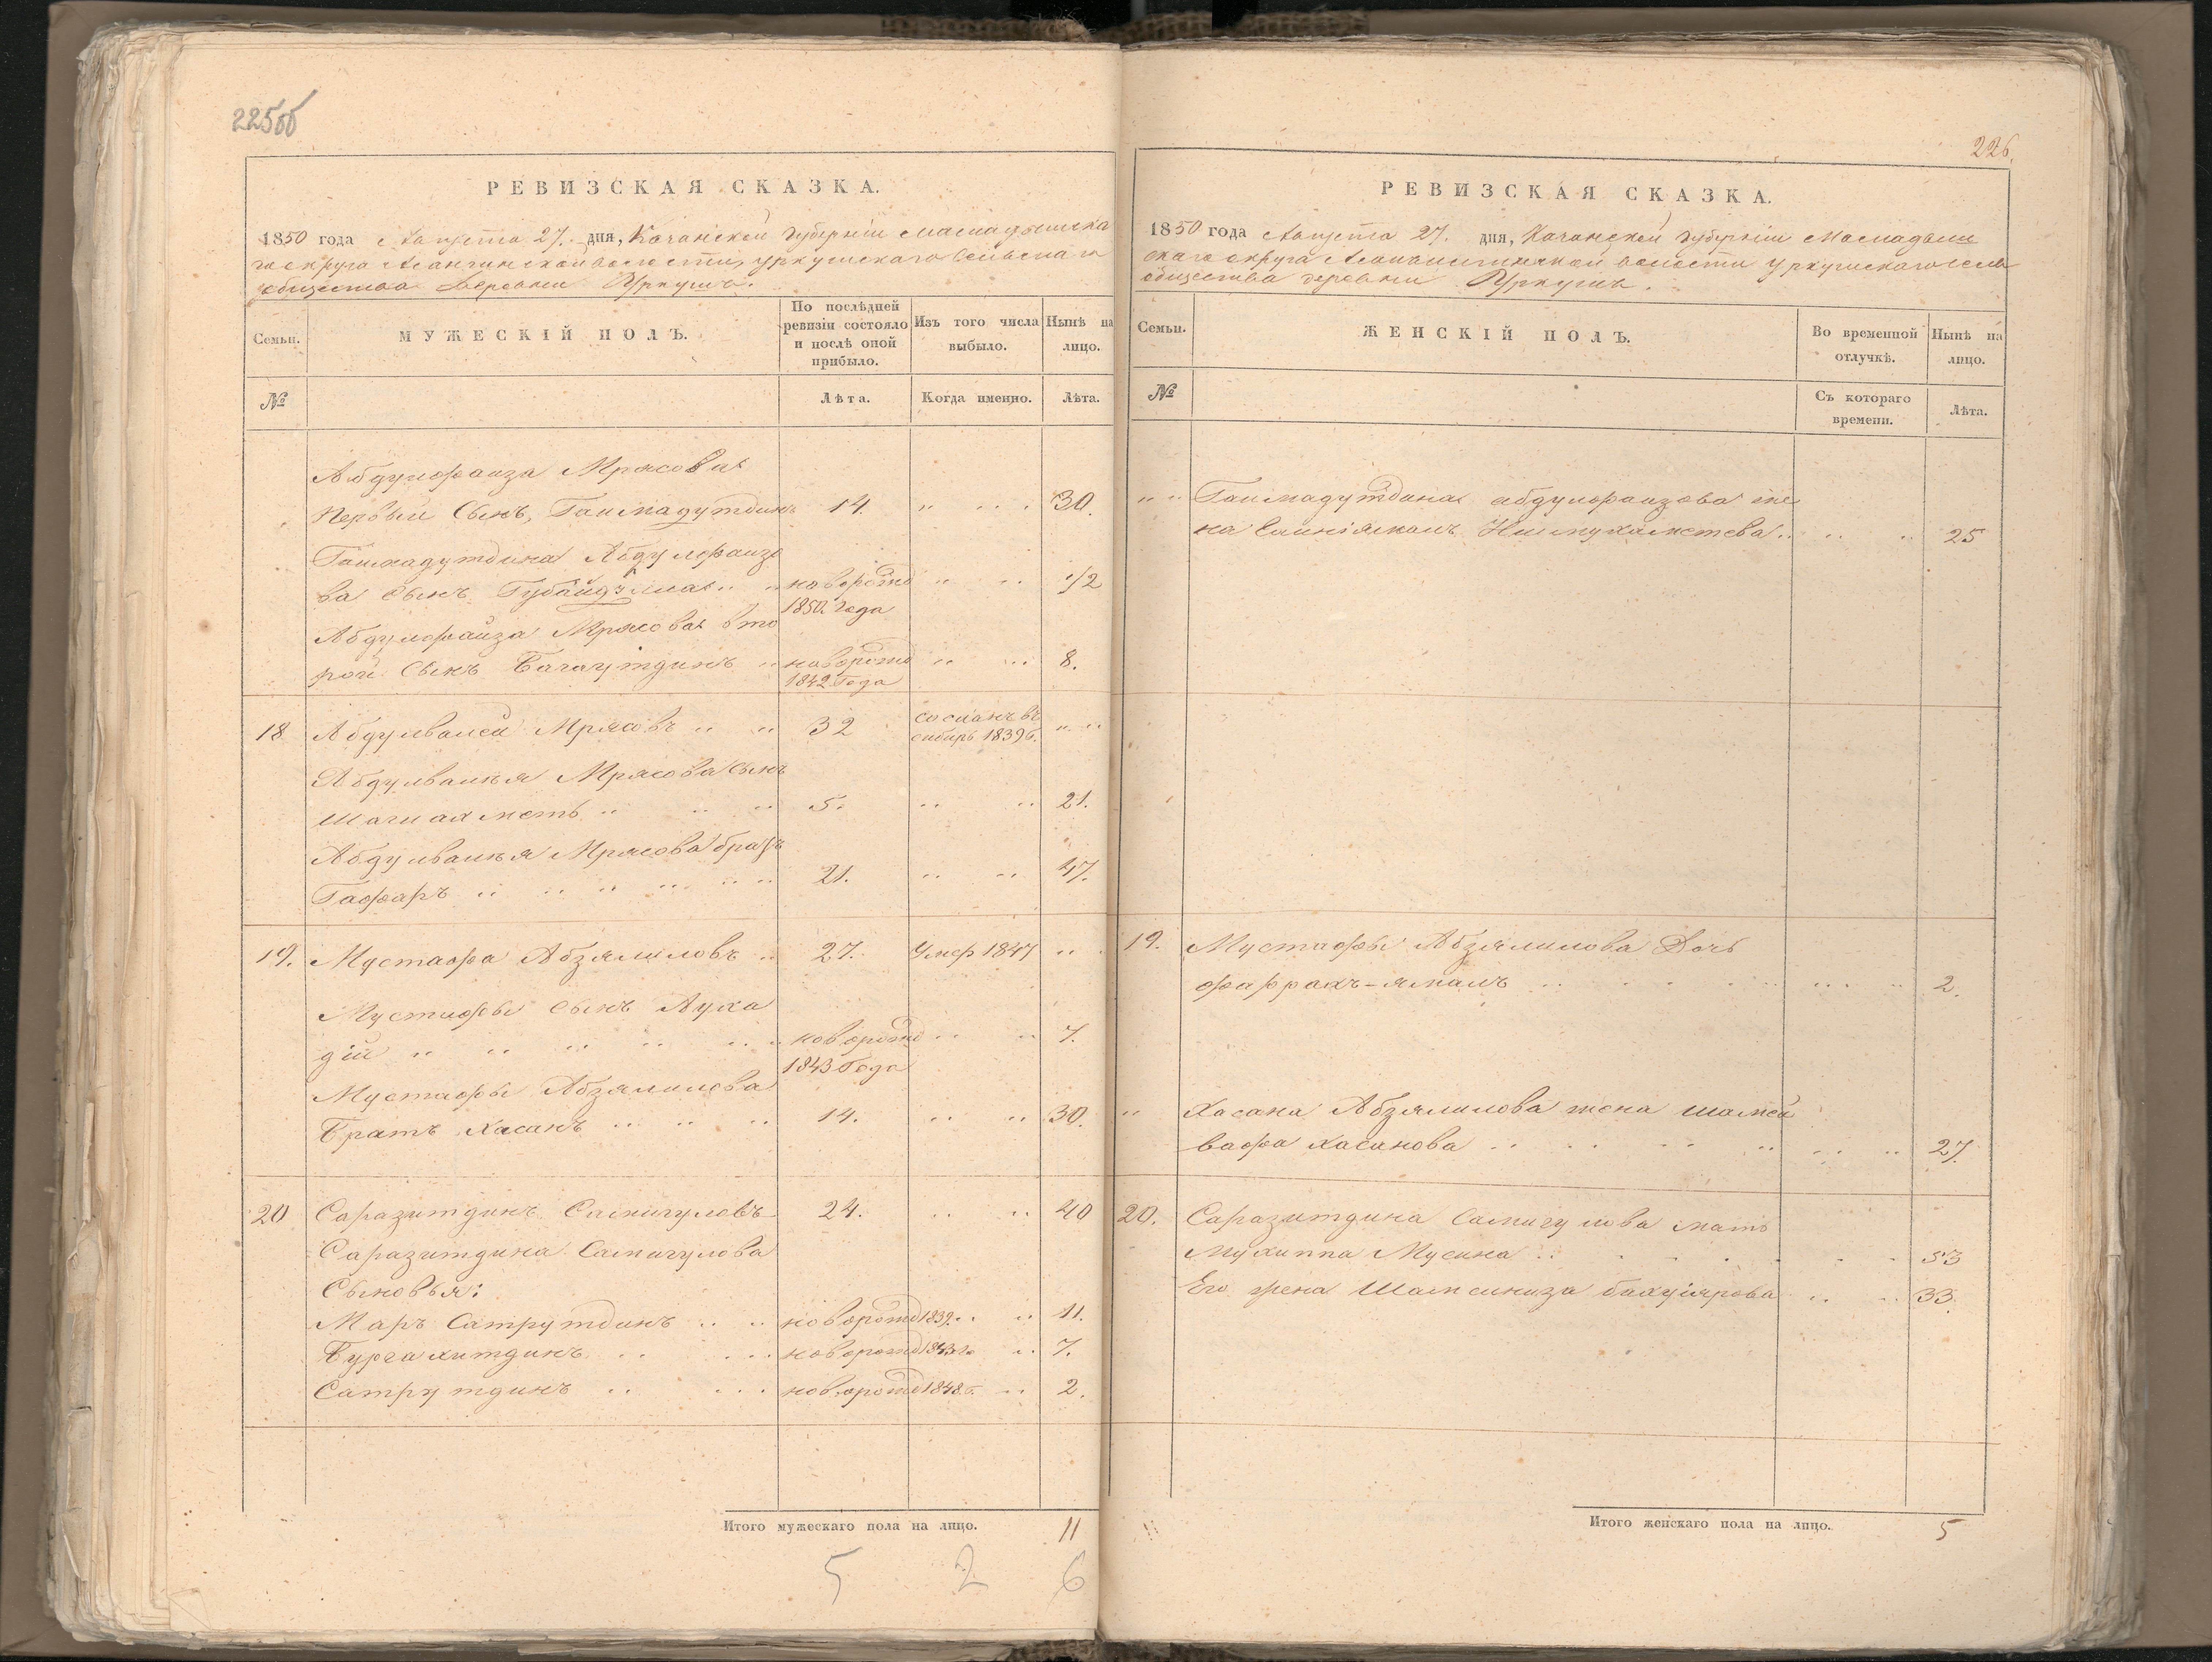 225об
РЕВИЗСКАЯ СКАЗКА.
1850 года Августа 27. дня, Казанской губернiи Мамадышска
го округа волости, Уркушскаго Сельскаго
общества Деревни Уркушъ.
Семьи.
МУЖЕСКІЙ ПОЛЪ.
По послѣдней ревизіи состояло и послѣ оной прибыло.
Изъ того числа выбыло.
Нынѣ на лицо.
№
Лѣта.
Когда именно.
Лѣта.
Абдулфаиза Мрясова
первый Сынъ, Гаимадутдинъ 14. " .. 30.
Гаимадутдина Абдулфаизо
ва Сынъ Губайдулла .. новорожд " .. 1/2
1850. года
Абдулфаиза Мрясова вто
рой Сынъ Багаутдинъ .. новорожд .. .. 8.
1842 Года
18 Абдулвалей Мрясовъ .. .. 32 сосланъ въ сибирь 1839 г. .. ..
Абдулвалѣя Мрясова Сынъ
Шагиахметъ .. .. .. 5. .. .. 21.
Абдулвалѣя Мрясова братъ
Гафаръ .. .. .. .. .. .. 21. .. .. 47.
19. Мустафа Абзялиловъ .. 27. Умер 1847 .. .
Мустафы Сынъ Ауха
дiй .. .. .. .. .. .. новорожд .. .. 7.
1843 Года
Мустафы Абзялилова
Братъ Хасанъ .. .. .. 14. .. .. 30.
20 Саразитдинъ Самигуловъ 24. .. .. 40
Саразитдина Самигулова
Сыновья:
Маръ Сатрутдинъ .. .. новорожд 1839. .. .. 11.
Бургахитдинъ .. ... новорожд 1843 г. .. 7.
Сатрутдинъ .. ... новорожд 1848 г. .. 2.
Итого мужескаго пола на лицо. 11
5 2 6
226.
РЕВИЗСКАЯ СКАЗКА.
1850 года Августа 27. дня, Казанской губернiи Мамадыш
скаго округа волости Уркушскаго сель
общества деревни Уркушъ.
Семьи.
ЖЕНСКІЙ ПОЛЪ.
Во временной отлучкѣ.
Нынѣ на лицо.
№
Съ котораго времени.
Лѣта.
" " Гаимадутдина абдулфаизова же
на Нигмухаметева .. .. .. 25
19. Мустафы Абзялилова Дочь
фаррахъ-ямалъ .. . . . .. ... .. 2.
" Хасана Абзялилова жена шамси
вафа Хасанова .. . . . .. .. .. 27.
20. Саразитдина Самигулова мать
Мухиппа Мусина .. . . . . . . 53
Его жена Шамсиниза бахуярова .. .. 33.
Итого женскаго пола на лицо. 5